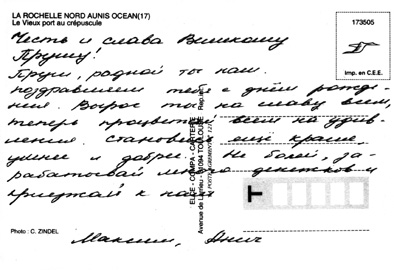 LA ROCHELLE NORD AUNIS OCEAN(17)
Le Vieux port au crépuscule
173505
Imp. en C.E.E.
Честь и слава Великому
Пруту!
Прут, родной ты наш.
поздравляем тебя с днём рожде-
ния. Вырос ты на славу всем,
теперь процветай всем на удив-
ление. становись ещё краше,
умнее и добрее. Не болей, за-
рабатывай много денежков и
приезжай к нам
ELLE - COMPA - CARTERIE
Avenue de Larrieu - 31094 TOULOUSE
Photo : C. ZINDEL
Максим,